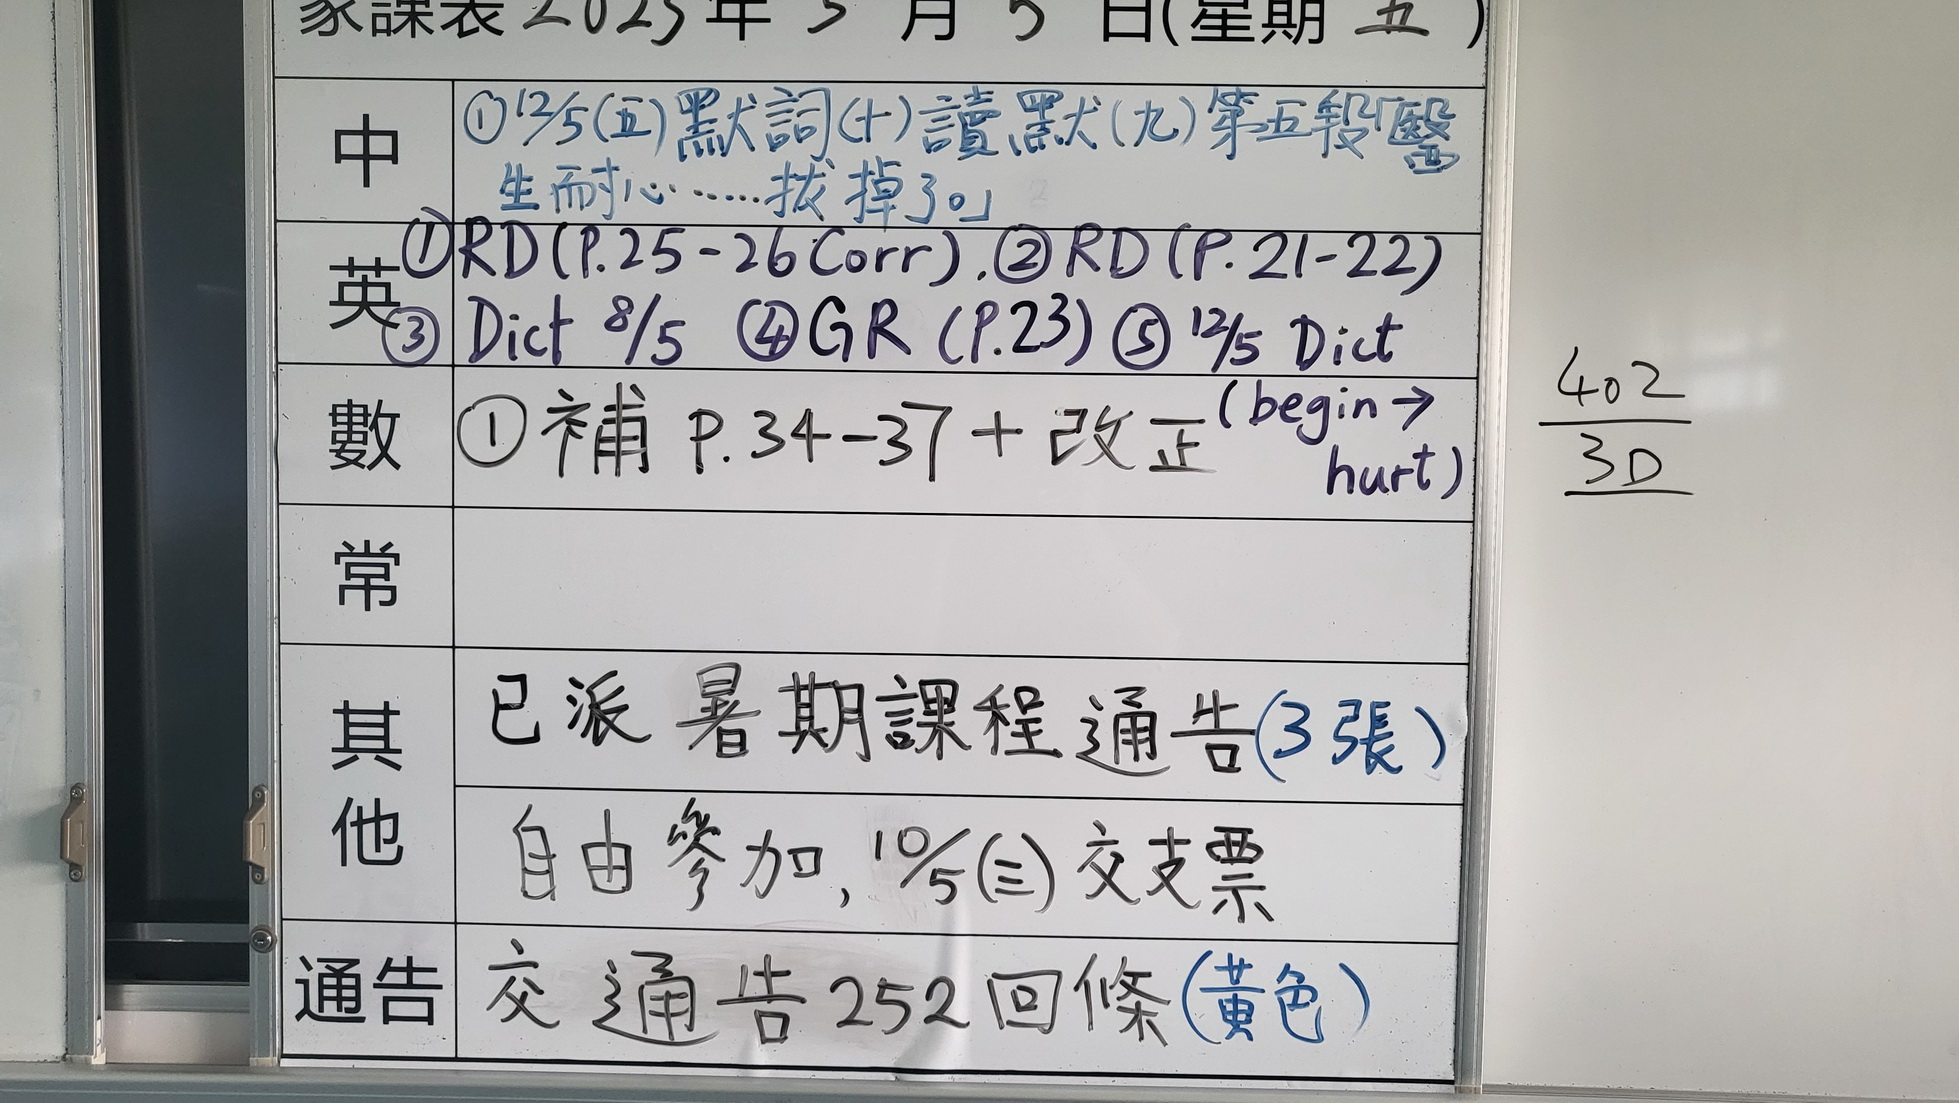 家課表2023年5月5日(星期五)
中
①12/5(五)默詞(十)讀默(九)第五段「醫
生耐心……拔掉了。」
英
①RD(P.25-26 Corr).②RD(P.21-22)
③Dict 8/5 ④GR (P.23) ⑤12/5 Dict
(begin→
hurt)
數
①補 P.34-37+改正
常
其他
已派暑期課程通告(3張)
自由參加,10/5(三)交支票
通告
交通告252回條(黃色)
402
3D